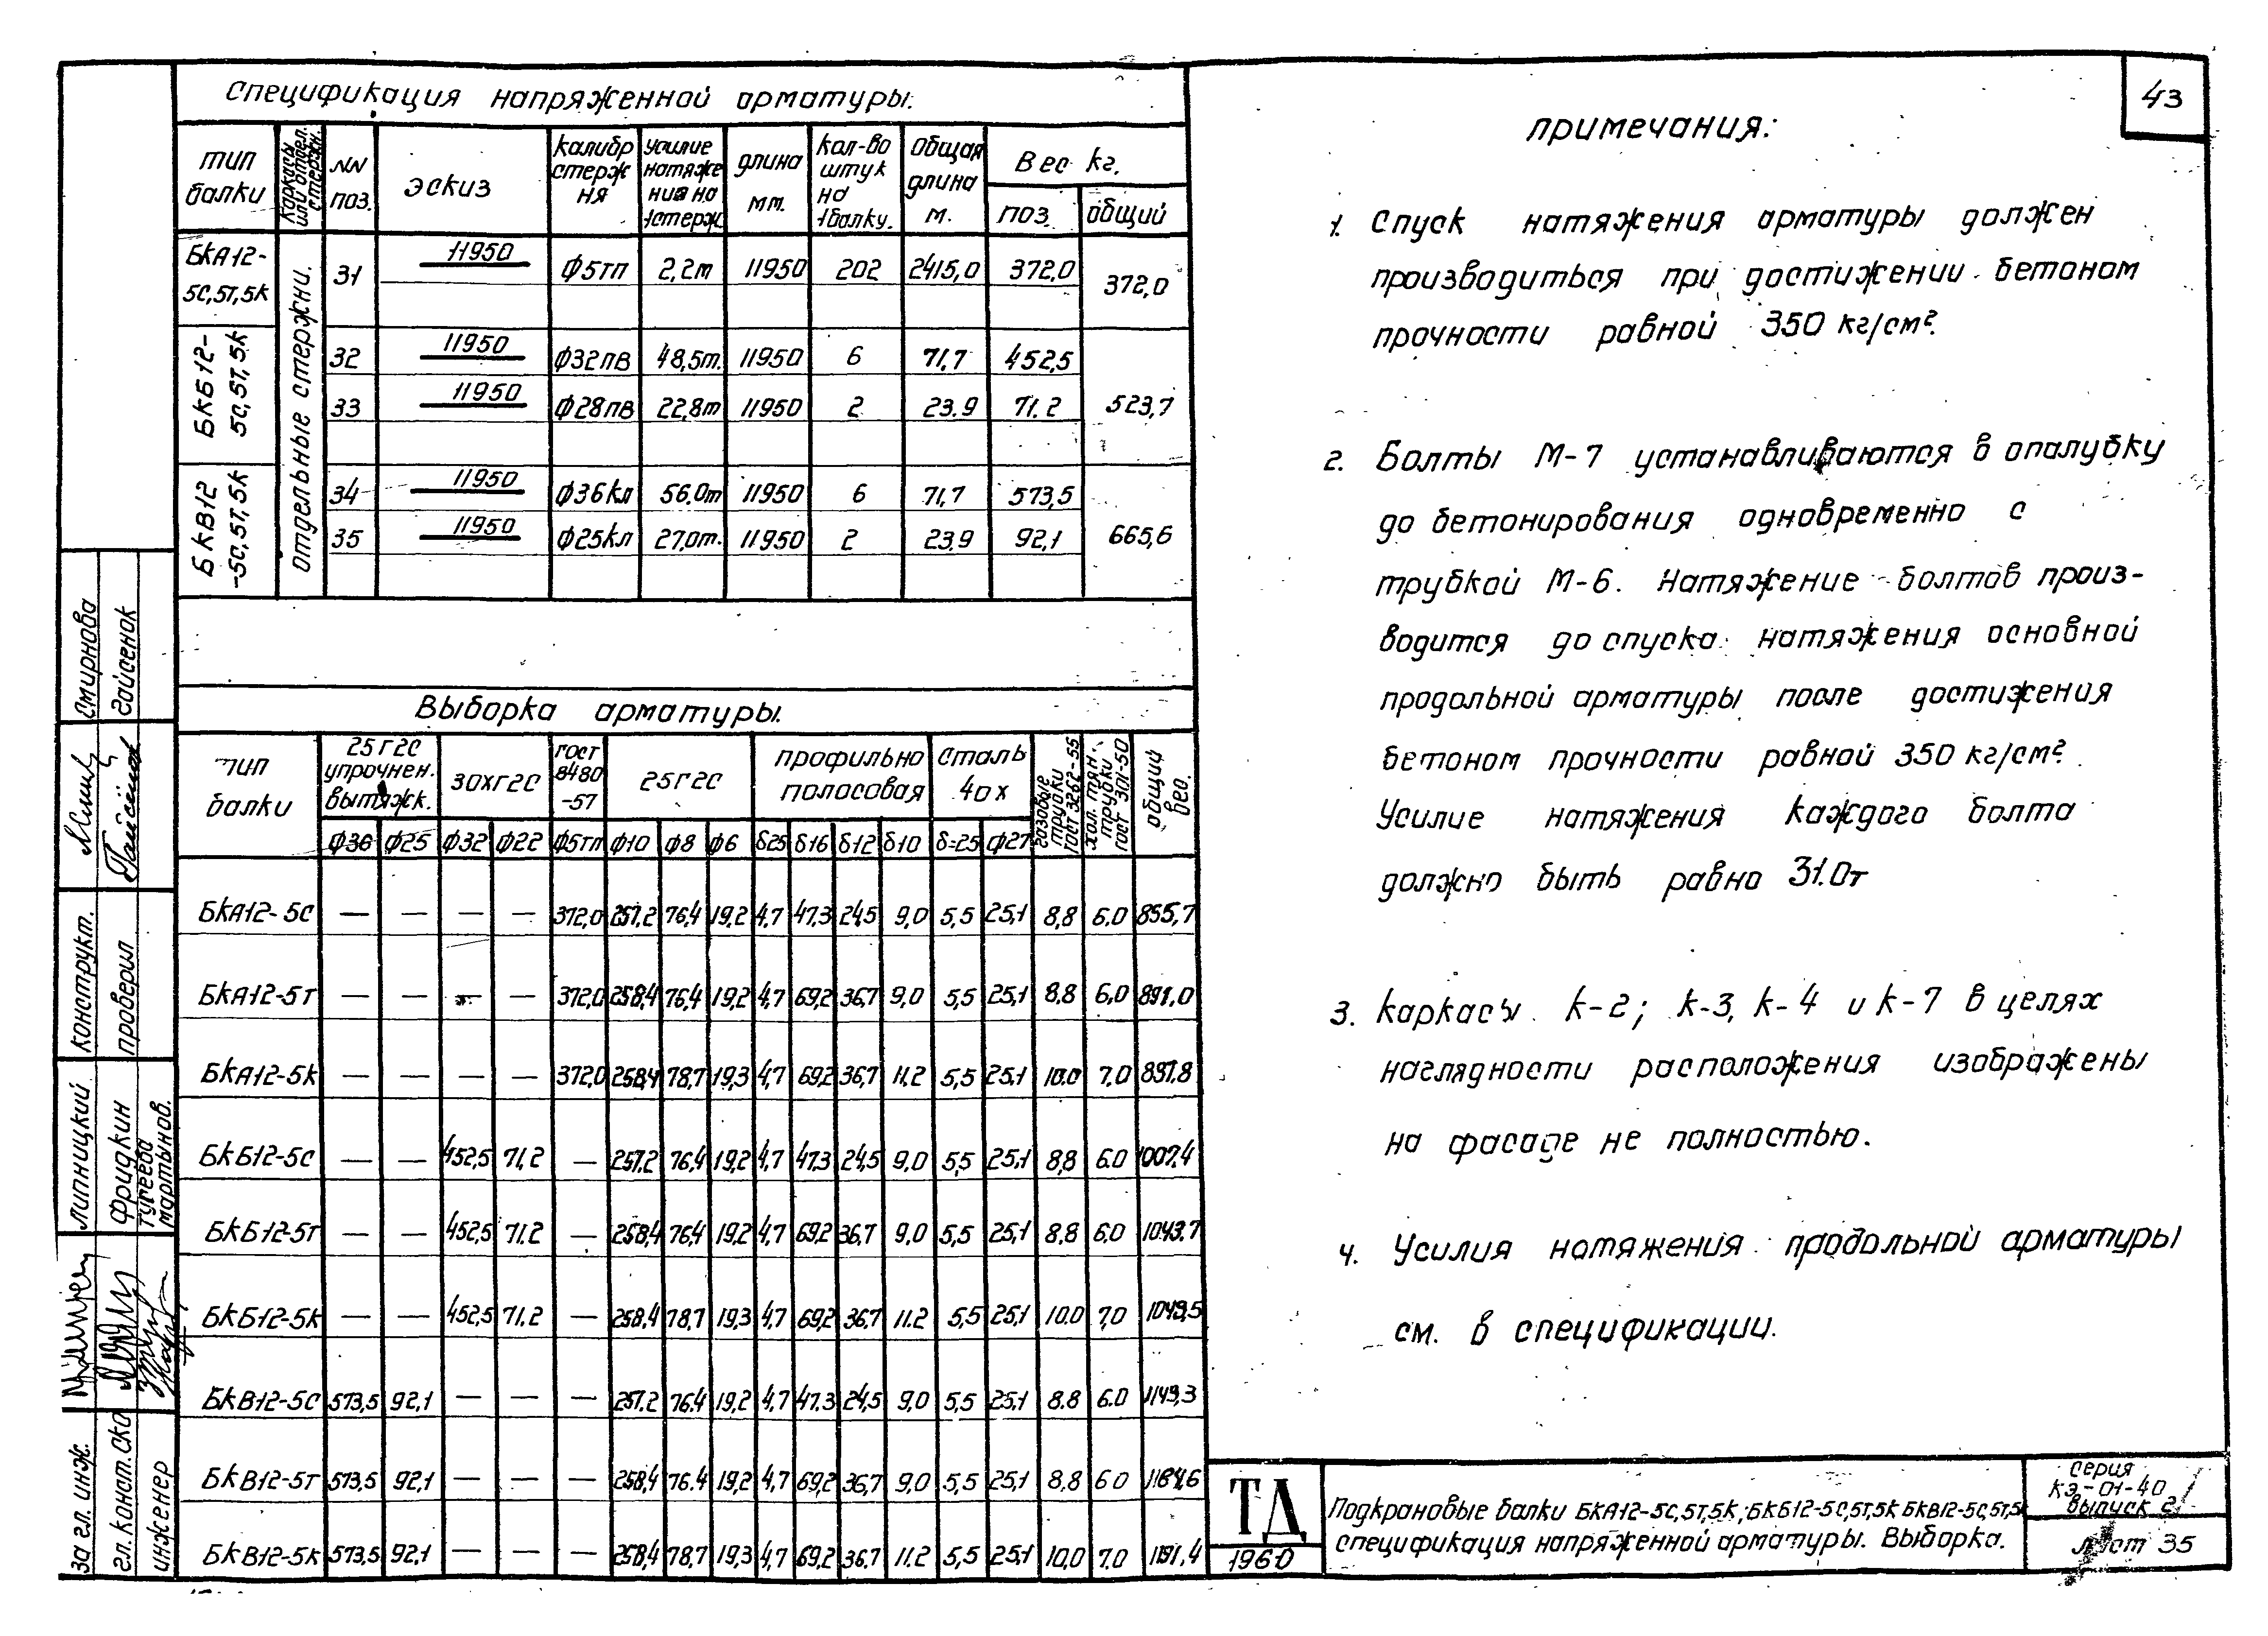 43
Спецификация напряженной арматуры.
тип балки | каркасы или отдел. стержн. | NN поз. | эскиз | калибр стержня | усилие натяжения на 1 стерж | длина мм. | кол-во штук на 1 балку. | общая длина м. | Вес кг. поз. | общий
БКА12-5С,5Т,5К | Отдельные стержни. | 31 | 11950 | ф5тп | 2,2т | 11950 | 202 | 2415,0 | 372,0 | 372,0
БКБ12-5С,5Т,5К | 32 | 11950 | ф32пв | 48,5т. | 11950 | 6 | 71,7 | 452,5 | 523,7
33 | 11950 | ф28пв | 22,8т | 11950 | 2 | 23.9 | 71.2
БКВ12-5С,5Т,5К | 34 | 11950 | ф36кл | 56.0т | 11950 | 6 | 71,7 | 573,5 | 665,6
35 | 11950 | ф25кл | 27.0т. | 11950 | 2 | 23.9 | 92,1
Выборка арматуры.
тип балки | 25Г2С упрочнен. вытяжк. | 30ХГ2С | ГОСТ 8480-57 | 25Г2С | профильно полосовая | Сталь 40Х | газовые трубки ГОСТ 3262-55 | хол. тян. трубки ГОСТ 301-50 | общий вес.
ф36 | ф25 | ф32 | ф22 | ф5тп | ф10 | ф8 | ф6 | δ25 | δ16 | δ12 | δ10 | δ=25 | ф27
БКА12-5С | — | — | — | — | 372,0 | 257,2 | 76,4 | 19,2 | 4,7 | 47,3 | 24,5 | 9,0 | 5,5 | 25,1 | 8,8 | 6.0 | 855,7
БКА12-5Т | — | — | — | — | 372,0 | 258,4 | 76,4 | 19,2 | 4,7 | 69,2 | 36,7 | 9,0 | 5,5 | 25,1 | 8,8 | 6,0 | 891,0
БКА12-5К | — | — | — | — | 372,0 | 258,4 | 78,7 | 19,3 | 4,7 | 69,2 | 36,7 | 11,2 | 5,5 | 25,1 | 10.0 | 7,0 | 897,8
БКБ12-5С | — | — | 452,5 | 71,2 | — | 257,2 | 76,4 | 19,2 | 4,7 | 47,3 | 24,5 | 9,0 | 5,5 | 25,1 | 8,8 | 6.0 | 1007,4
БКБ12-5Т | — | — | 452,5 | 71.2 | — | 258,4 | 76,4 | 19,2 | 4,7 | 69,2 | 36,7 | 9.0 | 5,5 | 25,1 | 8,8 | 6,0 | 1043,7
БКБ12-5К | — | — | 452,5 | 71.2 | — | 258,4 | 78,7 | 19,3 | 4,7 | 69,2 | 36,7 | 11.2 | 5,5 | 25,1 | 10.0 | 7,0 | 1049,5
БКВ12-5С | 573,5 | 92,1 | — | — | — | 257,2 | 76.4 | 19,2 | 4,7 | 47.3 | 24,5 | 9,0 | 5,5 | 25,1 | 8.8 | 6.0 | 1149,3
БКВ12-5Т | 573,5 | 92,1 | — | — | — | 258,4 | 76.4 | 19,2 | 4,7 | 69,2 | 36,7 | 9,0 | 5,5 | 25,1 | 8,8 | 6.0 | 1184,6
БКВ12-5К | 573,5 | 92,1 | — | — | — | 258,4 | 78,7 | 19,3 | 4,7 | 69,2 | 36,7 | 11.2 | 5,5 | 25,1 | 10,0 | 7,0 | 1191,4
примечания:
1. Спуск натяжения арматуры должен
производиться при достижении бетоном
прочности равной 350 кг/см².
2. Болты М-7 устанавливаются в опалубку
до бетонирования одновременно с
трубкой М-6. Натяжение болтов произ-
водится до спуска натяжения основной
продольной арматуры после достижения
бетоном прочности равной 350 кг/см².
Усилие натяжения каждого болта
должно быть равно 31.0т
3. Каркасы К-2; К-3, К-4 и К-7 в целях
наглядности расположения изображены
на фасаде не полностью.
4. Усилия натяжения продольной арматуры
см. в спецификации.
ТД
1960
Подкрановые балки БКА12-5С,5Т,5К; БКБ12-5С,5Т,5К БКВ12-5С,5Т,5К
спецификация напряженной арматуры. Выборка.
серия
КЭ-01-40
выпуск 2
лист 35
за гл. инж. | Липницкий | конструкт. | Смирнова
гл. конст. ско | Фридкин | проверил | Гайсенок
инженер | Тугеева
Мартынов.